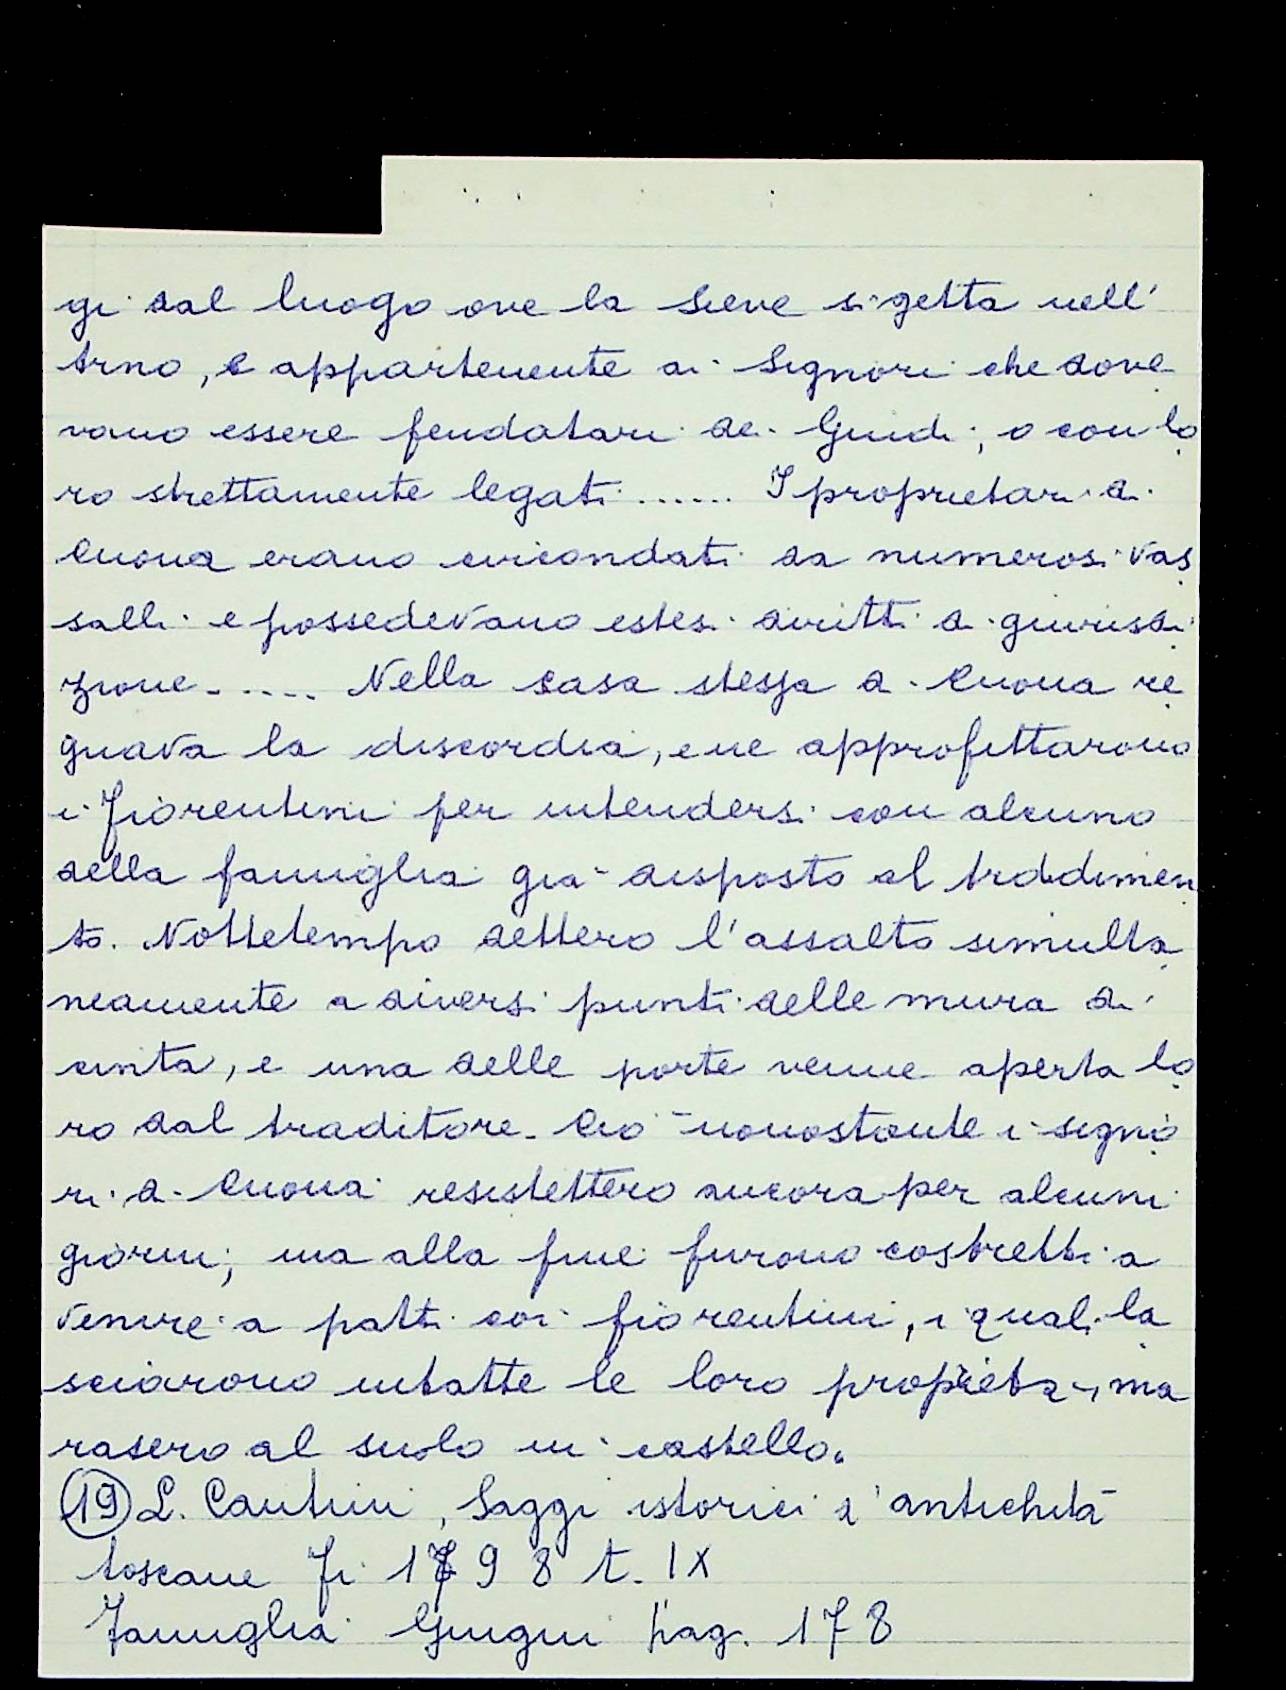 gi dal luogo ove la Sieve si getta nell'
Arno, e appartenente ai Signori che dove
vano essere feudatari dei Guidi, o con lo
ro strettamente legati ...... I proprietari di
Cuona erano circondati da numerosi vas
salli e possedevano estesi diritti di giurisdi
zione ..... Nella casa stessa di Cuona re
gnava la discordia, e ne approfittarono
i fiorentini per intendersi con alcuno
della famiglia già disposto al tradimen
to. Nottetempo dettero l'assalto simulta
neamente a diversi punti delle mura di
cinta, e una delle porte venne aperta lo
ro dal traditore. Ciò nonostante i signo
ri di Cuona resistettero ancora per alcuni
giorni, ma alla fine furono costretti a
venire a patti coi fiorentini, i quali la
sciarono intatte le loro proprietà, ma
rasero al suolo in castello.
(19) L. Cantini, Saggi istorici d'antichità
toscane Fi 1798 t. IX
Famiglia Giugni pag. 178